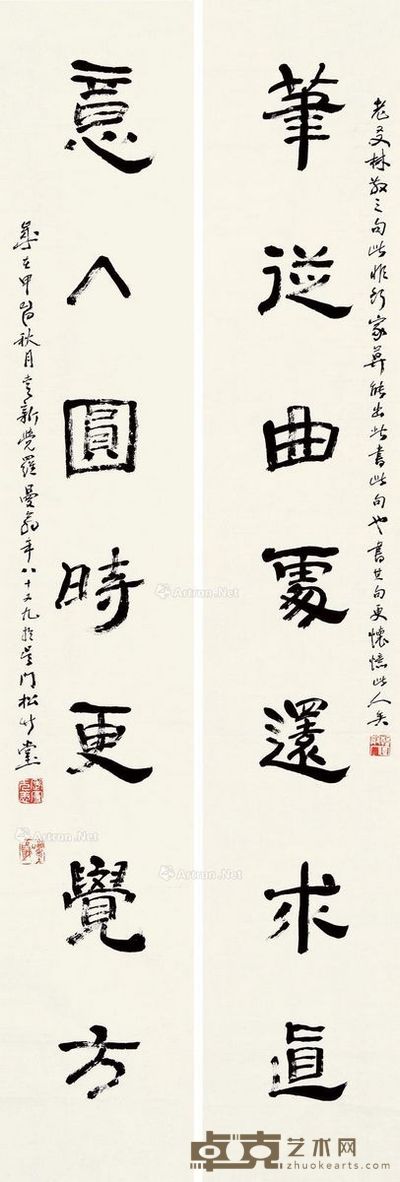 老友林散之句此非行家莫能出此書此句也書其句更懷憶此人矣
筆從曲處還求直
意入圓時更覺方
歲在甲申秋月愛新覺羅曼翁年八十又九於吳門松竹堂
Artron.Net
Artron.Net
Artron.Net
Artron.Net
卓克艺术网
zhuokearts.com